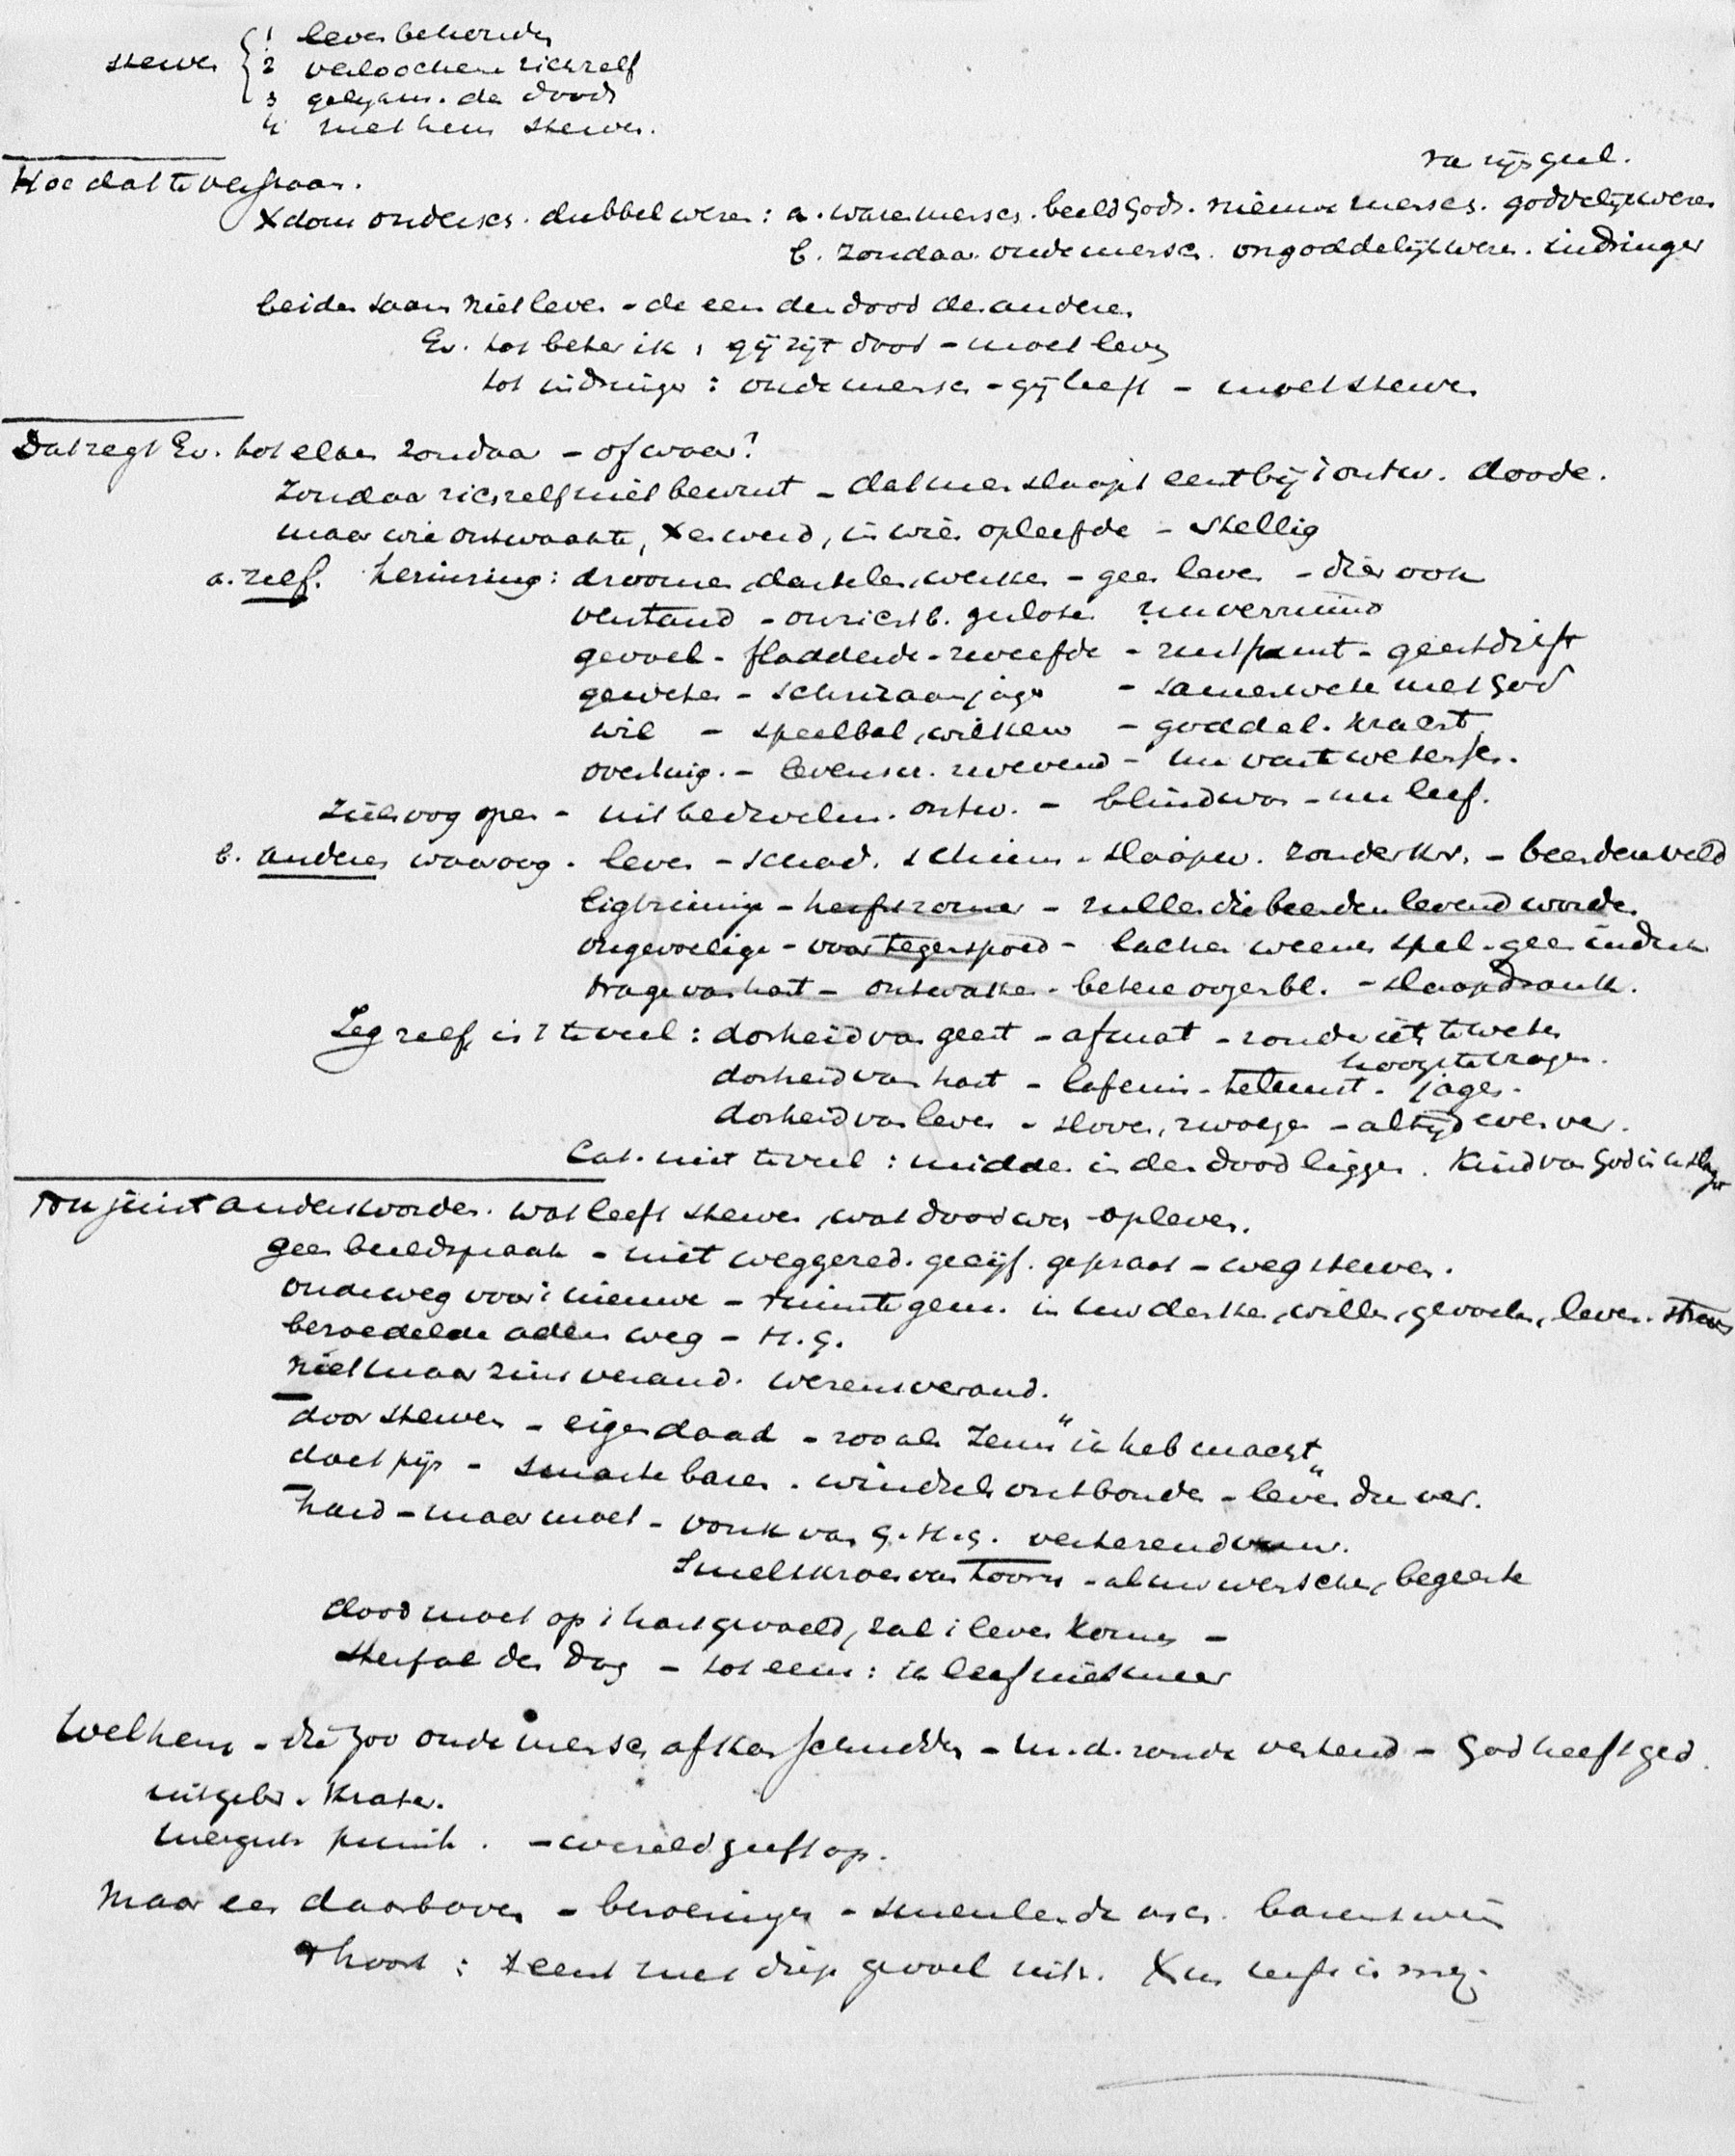 sterven { 1 leven behouden
2 verloochene zichzelf
3 gelijkw. den dood
4 met hem sterven.
Hoe dat te verstaan.
Xdom ondersch. dubbel wezen: a. ware mensch. beeld Gods. nieuwe mensch. goddelijk wezen
b. zondaar. oude mensch. ongoddelijk wezen. indringer
beiden saam niet leven - de een den dood des anderen
Ev. tot beter ik: gij zijt dood - moet leven
tot indringer: oude mensch - gij leeft - moet sterven
Dat zegt Ev. tot elken zondaar - of waar?
Zondaar zichzelf niet bewust - dat men slaapt eerst bij 't ontw. doode.
maar wie ontwaakte, X en werd, in wien opleefde - stellig
a. zelf. herinnering: droomen, dartelen, werken - geen leven - dier ook
verstand - onzichtb. gesloten nu verruimd
gevoel - fladderde - zweefde - rustpunt - geestdrift
geweten - schrikaanjager - samenweten met God
wil - speelbal, willekeur - goddel. kracht
overtuig. - levensw. zwevend - nu vast wetensch.
Zielsoog open - uit bedwelm. ontw. - blind was - nu leef.
b. anderen waarvoor. leven - schad. schim - slaapw. zonder kr. - beenderenveld
- zullen die beenderen levend worden
ongevoelige - voor tegenspoed - lachen weenen spel - geen indruk
trage van hart - ontwaken - betere oogenbl. - slaapdrank.
Zeg zelf, is 't te veel: dorheid van geest - afmat - zonder iets te weten
hoogste vragen.
dorheid van hart - lafenis - teleurst. - jagen.
dorheid van leven - sloven, zwoegen - altijd even ver.
Cat. niet te veel: midden in den dood liggen. Kind van God is
Nu juist anders worden. wat leeft sterven, wat dood was opleven.
geen beeldspraak - niet weggered. gecijf. gepraat - weg sterven.
oude weg voor 't nieuwe - ruimte gem. in uw denken, willen, gevoelen, leven. streven
bezoedelde adem weg - H.G.
niet maar zins verand. wezensverand.
door sterven - eigen daad - zooals Jezus "ik heb macht"
doet pijn - smarte baren. windsels ontbonden - leven
hard - maar moet - vonk van G. H.G. verterend vuur.
Smeltkroes van toorn - al uw wenschen, begeerte
dood moet op 't hart gevoeld, zal 't leven komen -
sterf al den dag - tot eens: ik leef niet meer
Wel hem - die zoo oude mensch af kon schudden - m.d. zonde verkend - God heeft ged.
uitgebr. krater.
- wereld geeft op.
Maar een daarboven - beroeringen - smeulende asch.
hoort: eens met diep gevoel uit. Xus leeft in mij.